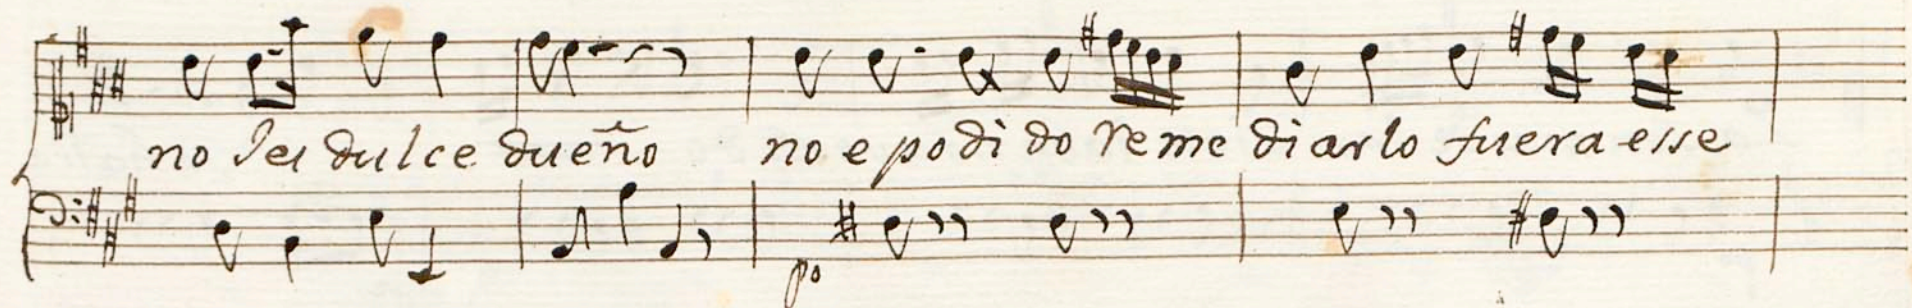 no seas dulce dueño no e podido remediarlo fuera esse
po